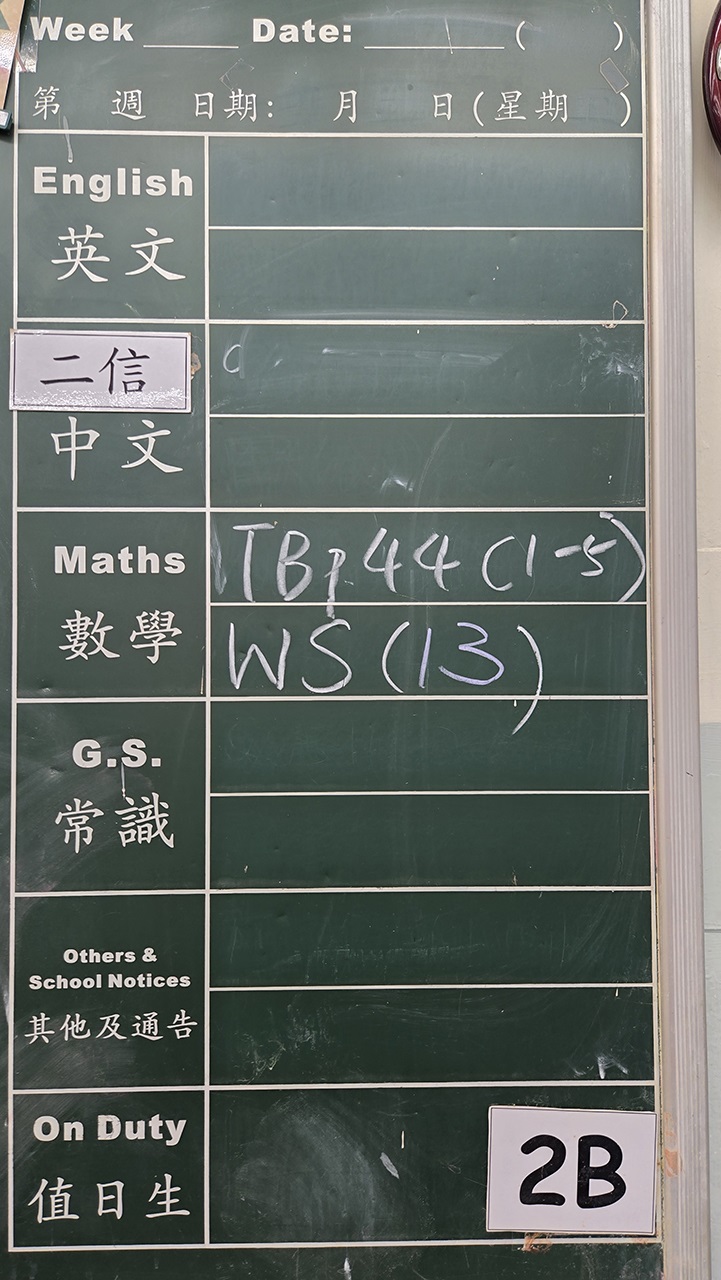 Week ____ Date: ______ ( )
第 週 日期: 月 日(星期 )
English
英文
二信
中文
Maths
TBp44 (1-5)
數學
WS (13)
G.S.
常識
Others &
School Notices
其他及通告
On Duty
值日生
2B